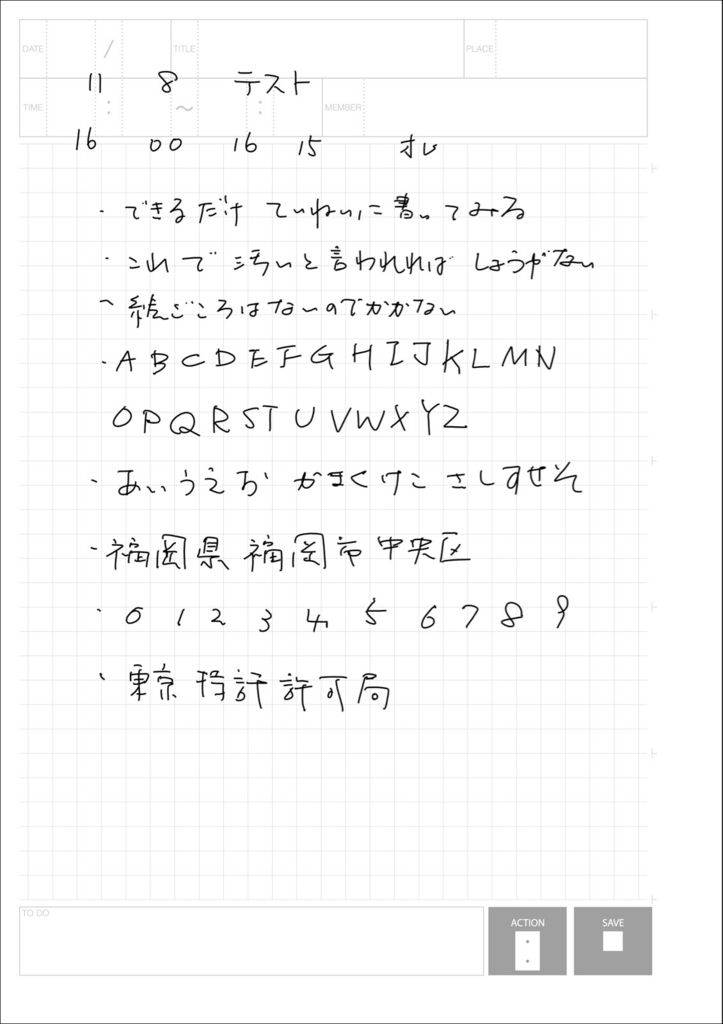 DATE / TITLE PLACE
11 8 テスト
TIME : ～ : MEMBER
16 00 16 15 オレ
・できるだけ ていねいに書いてみる
・これで汚いと言われれば しょうがない
・絵ごころはないのでかかない
・ABCDEFGHIJKLMN
OPQRSTUVWXYZ
・あいうえお かきくけこ さしすせそ
・福岡県 福岡市 中央区
・0 1 2 3 4 5 6 7 8 9
・東京特許許可局
TO DO
ACTION SAVE
: